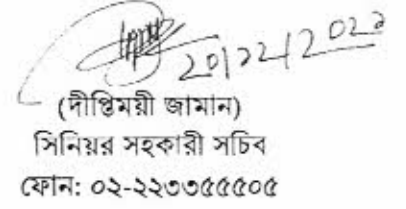 ২০/১২/২০২১
(দীপ্তিময়ী জামান)
সিনিয়র সহকারী সচিব
ফোন: ০২-২২৩৩৫৫৫০৫